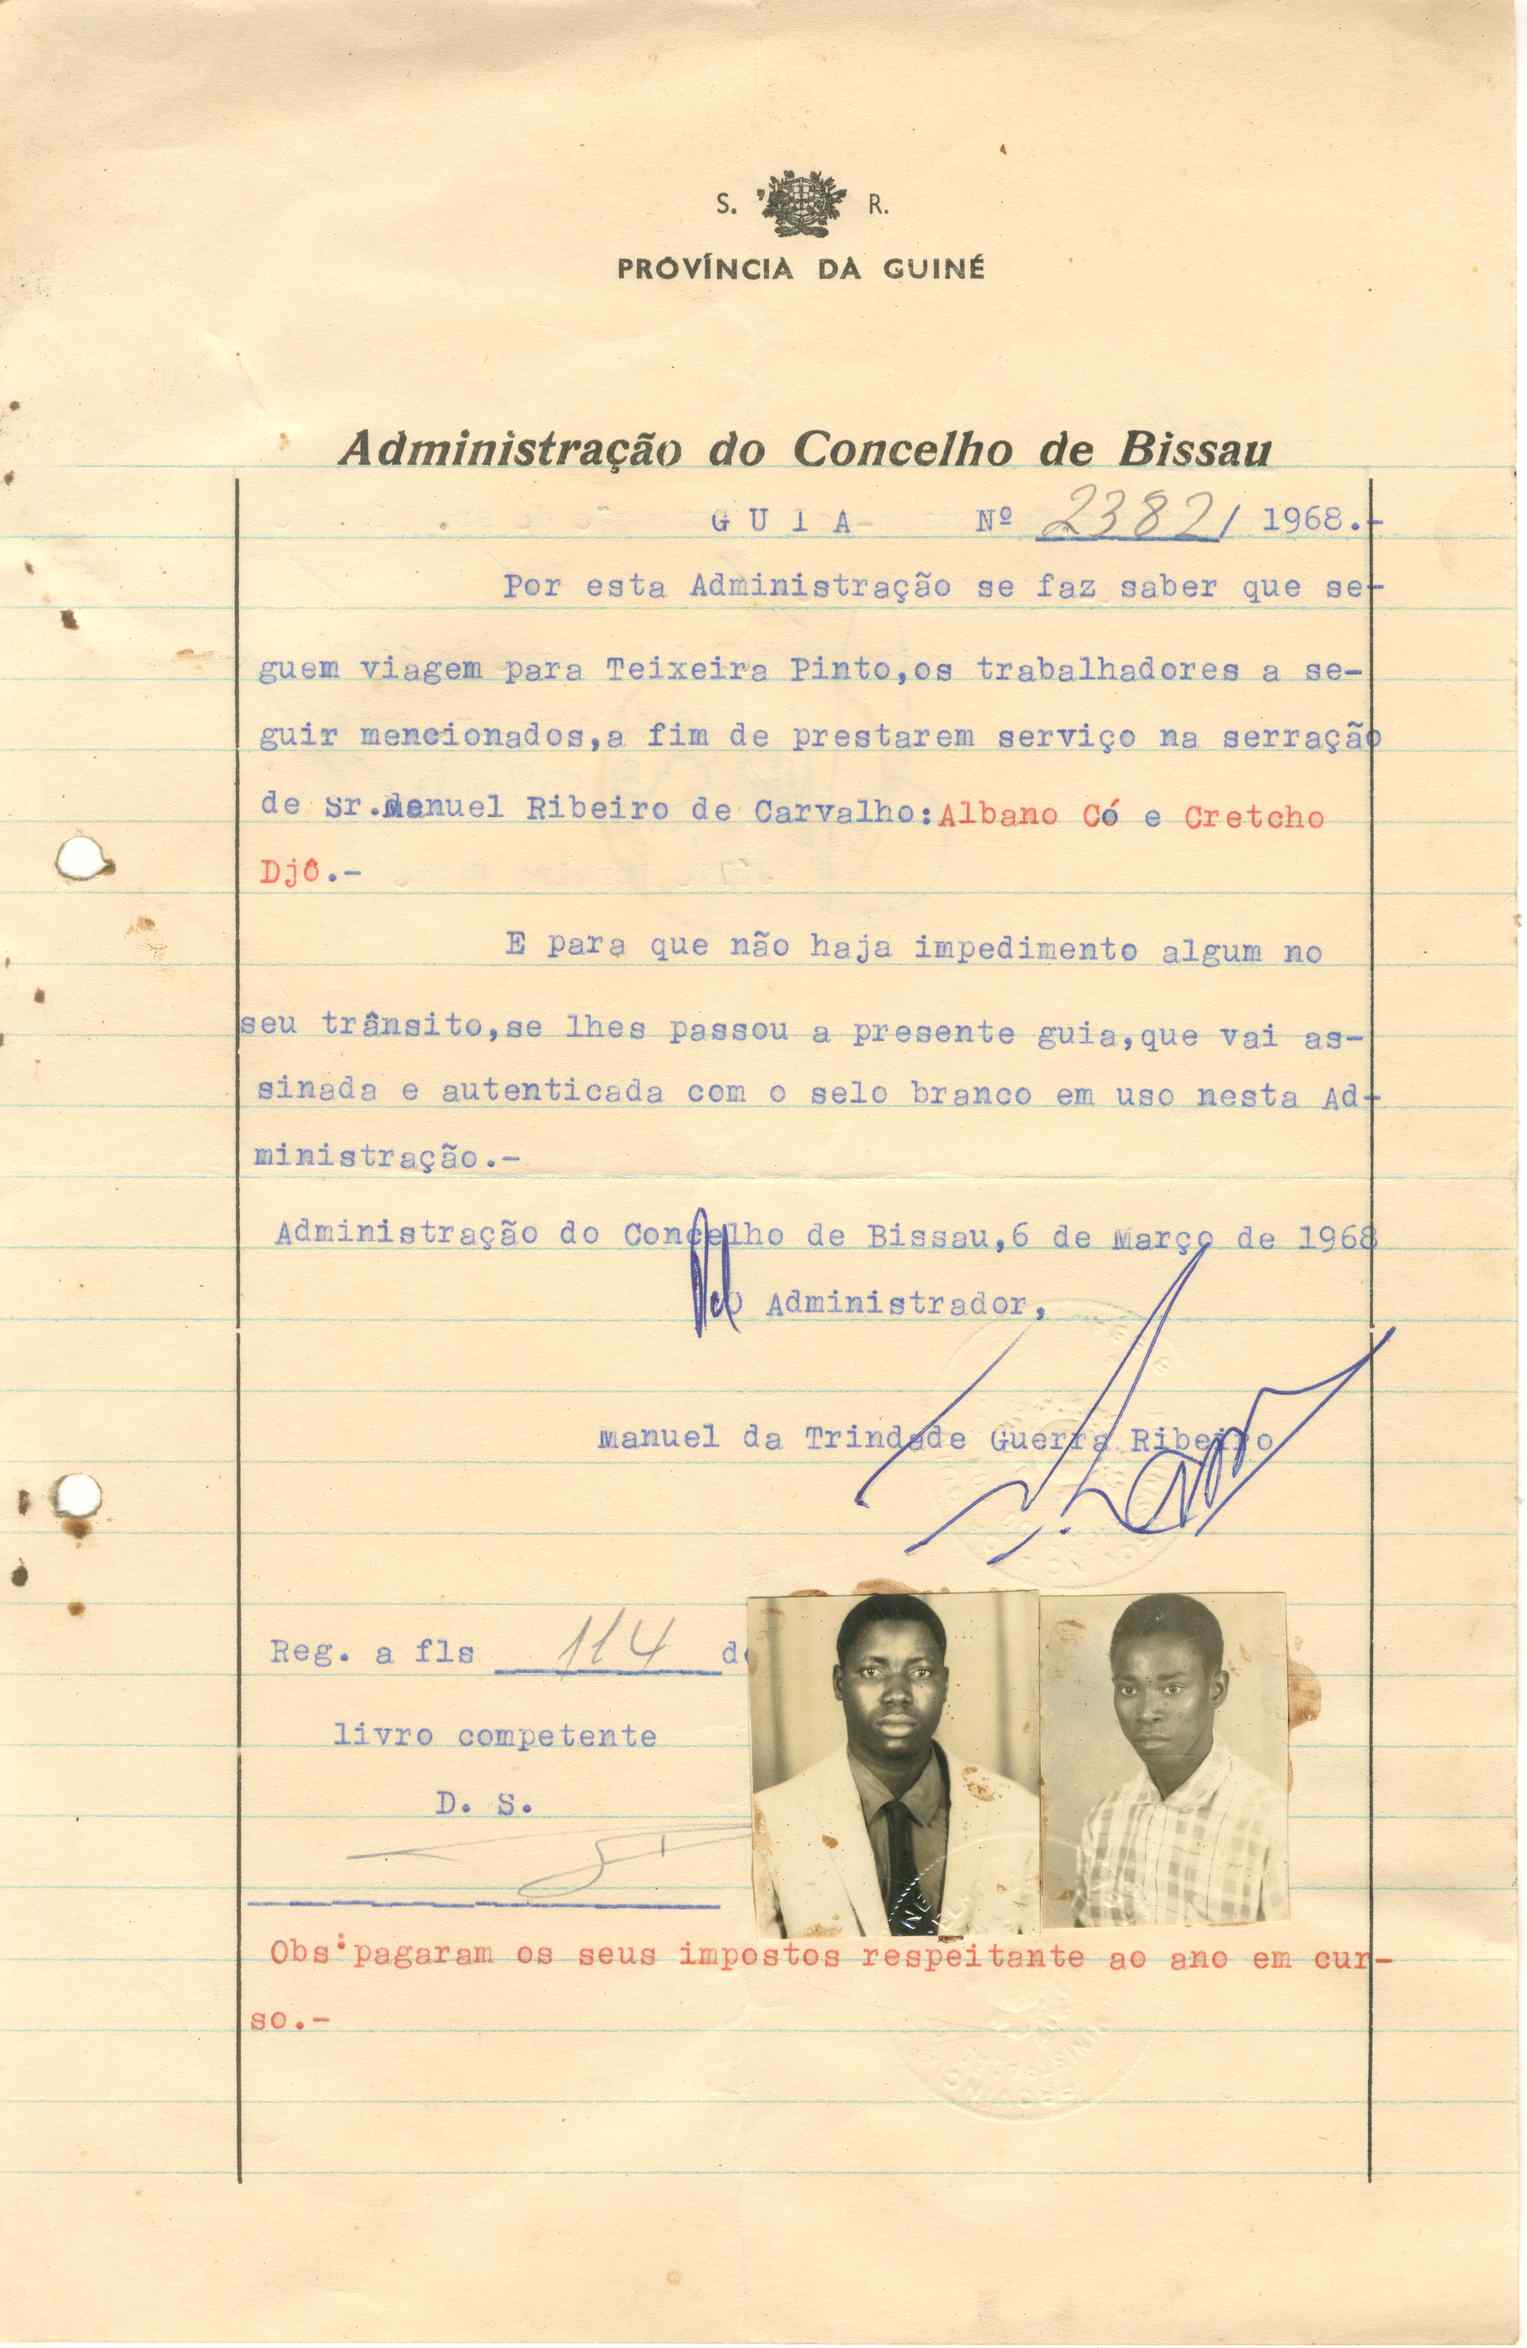 S. R.
PROVÍNCIA DA GUINÉ
Administração do Concelho de Bissau
G U I A Nº 2382/ 1968.-
Por esta Administração se faz saber que se-
guem viagem para Teixeira Pinto,os trabalhadores a se-
guir mencionados,a fim de prestarem serviço na serração
de Sr.Manuel Ribeiro de Carvalho:Albano Có e Cretcho
Djô.-
E para que não haja impedimento algum no
seu trânsito,se lhes passou a presente guia,que vai as-
sinada e autenticada com o selo branco em uso nesta Ad-
ministração.-
Administração do Concelho de Bissau,6 de Março de 1968
Pel O Administrador,
Manuel da Trindade Guerra Ribeiro
Reg. a fls 114 do
livro competente
D. S.
Obs:pagaram os seus impostos respeitante ao ano em cur-
so.-